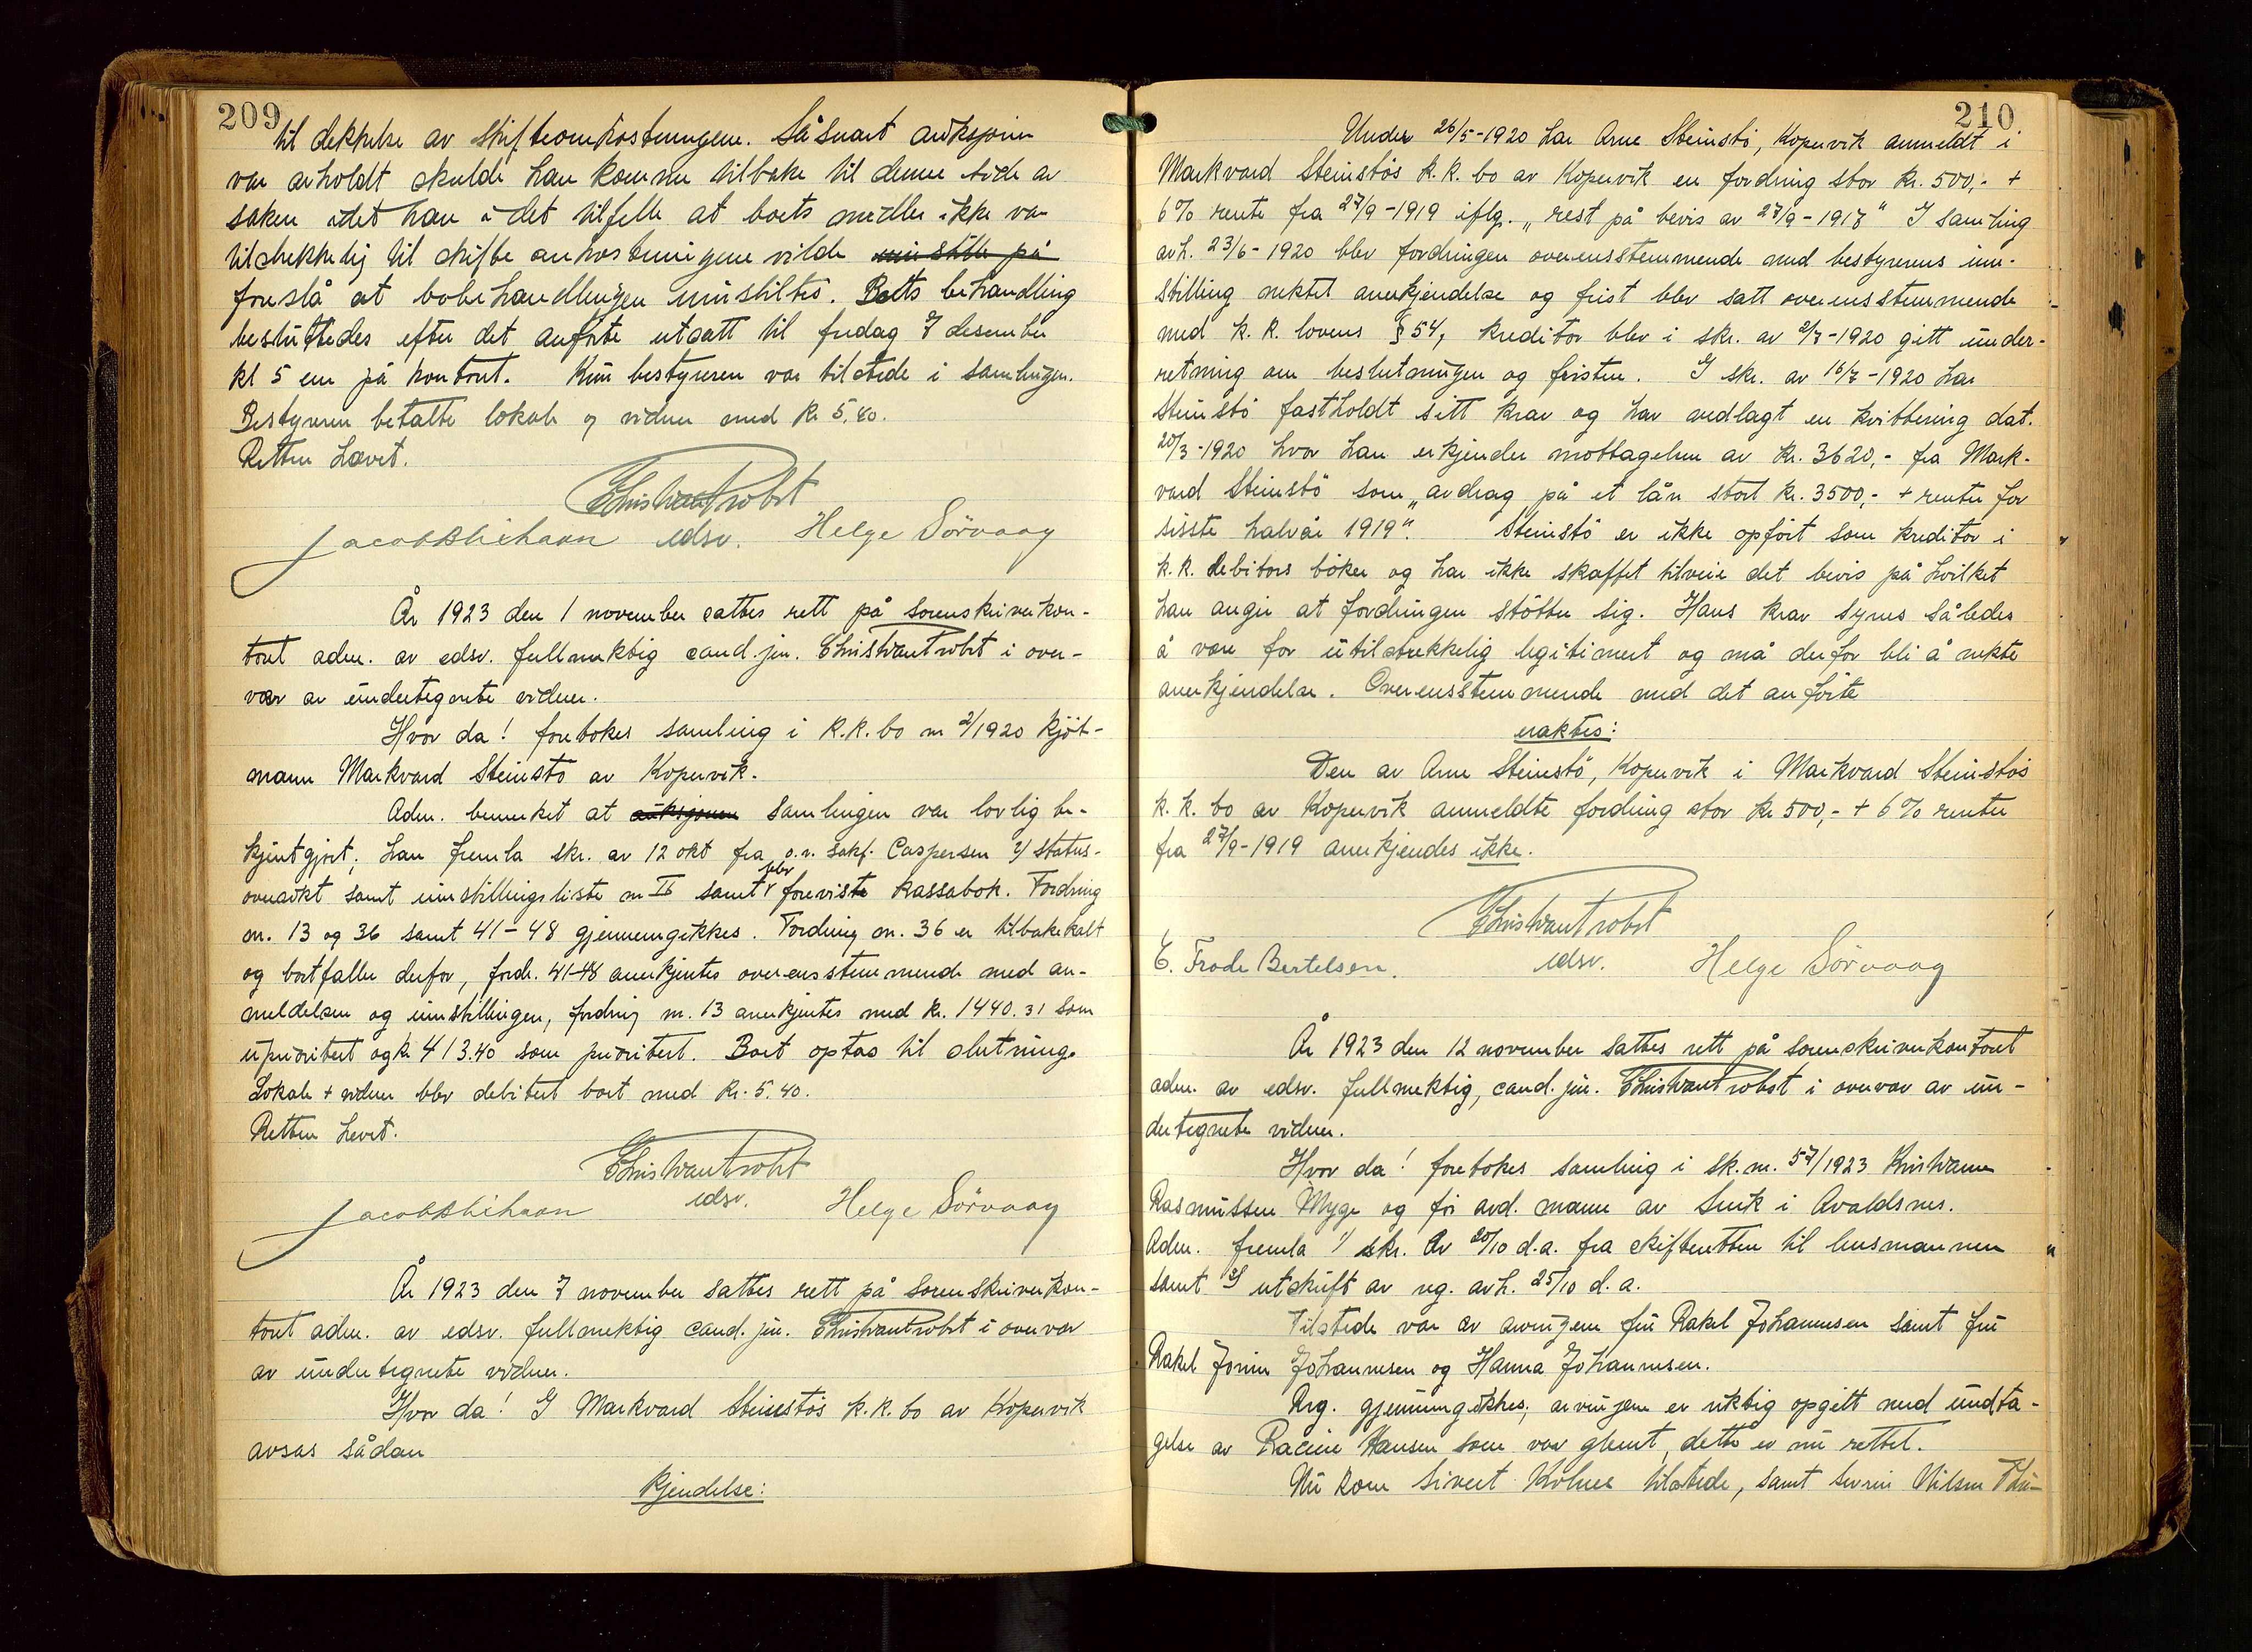 209
til dekkelse av skifteomkostningene. Så snart auksjonen
var avholdt skulde han komme tilbake til denne side av
saken idet han i det tilfelle at boets midler ikke var
tilstrekkelig til skifte omkostningene vilde innstille på
foreslå at bobehandlingen innstiltes. Boets behandling
besluttedes efter det anførte utsatt til fredag 7 desember
kl 5 em på kontoret. Kun bestyreren var tilstede i samlingen.
Bestyreren betalte lokale og vidner med kr 5.40.
Retten hævet.
Chr. Wantrobst
edsv.
Jacob Helge Sörvaag
År 1923 den 1 november sattes rett på sorenskriverkon-
toret adm. av edsv. fullmektig cand. jur. Chr. Wantrobst i over-
vær av undertegnete vidner.
Hvor da! foretokes samling i k.k. bo nr 2/1920 kjøt-
mann Markvard Steinstö av Kopervik.
Adm. bemerket at auksjonen samlingen var lovlig be-
kjentgjort; han fremla skr. av 12 okt fra o.r. sakf. Caspersen 2/ status-
oversikt samt innstillingsliste nr II samt selv foreviste kassabok. Fordring
nr. 13 og 36 samt 41-48 gjennemgikkes. Fordring nr. 36 er tilbakekalt
og bortfaller derfor, fordr. 41-48 anerkjentes overensstemmende med an-
meldelsen og innstillingen, fordring nr. 13 anerkjentes med kr. 1440.31 som
uprioritert og kr 413.40 som prioritert. Boet optas til slutning.
Lokale + vidner blev debitert boet med kr. 5.40.
Retten hevet.
Chr. Wantrobst
edsv.
Jacob Helge Sörvaag
År 1923 den 7 november sattes rett på sorenskriverkon-
toret adm. av edsv. fullmektig cand. jur. Chr. Wantrobst i overvær
av undertegnete vidner.
Hvor da! I Markvard Steinstös k.k. bo av Kopervik
avsas sådan
kjendelse:
210
Under 26/5-1920 har Arne Steinstö, Kopervik anmeldt i
Markvard Steinstös k.k. bo av Kopervik en fordring stor kr. 500,- +
6% rente fra 27/9-1919 iflg. "rest på bevis av 27/9-1918" I samling
avh. 23/6-1920 blev fordringen overensstemmende med bestyrerens inn-
stilling nektet anerkjendelse og frist blev satt overensstemmende
med k.k. lovens § 54, kreditor blev i skr. av 2/7-1920 gitt under-
retning om beslutningen og fristen. I skr. av 16/7-1920 har
Steinstö fastholdt sitt krav og har vedlagt en kvittering dat.
20/3-1920 hvor han erkjender mottagelsen av kr. 3620,- fra Mark-
vard Steinstö som "avdrag på et lån stort kr. 3500,- + renter for
sisste halvår 1919". Steinstö er ikke opført som kreditor i
k.k. debitors bøker og har ikke skaffet tilveie det bevis på hvilket
han angir at fordringen støtter sig. Hans krav synes således
å være for utilstrekkelig legitimert og må derfor bli å nekte
anerkjendelse. Overensstemmende med det anførte
eraktes:
Den av Arne Steinstö, Kopervik i Markvard Steinstös
k.k. bo av Kopervik anmeldte fordring stor kr 500,- + 6% renter
fra 27/9-1919 anerkjendes ikke.
Chr. Wantrobst
edsv.
E. Frode Bertelsen. Helge Sörvaag
År 1923 den 12 november sattes rett på sorenskriverkontoret
adm. av edsv. fullmektig, cand. jur. Chr. Wantrobst i overvær av un-
dertegnete vidner.
Hvor da! foretokes samling i sk. nr. 57/1923 Kristianne
Rasmussen Myge og før avd. mann av Snik i Avaldsnes.
Adm. fremla 1/ skr. av 20/10 d.a. fra skifteretten til lensmannen
samt 2/ utskrift av reg. avh. 25/10 d.a.
Tilstede var av arvingene fru Rakel Johannesen samt fru
Rakel Johannesen og Hanna Johannesen.
Reg. gjennemgikkes; arvingene er riktig opgitt med undta-
gelse av Racine Hansen som var glemt, dette er nu rettet.
Nu kom Sivert Kolnes tilstede, samt Severin Nilsen